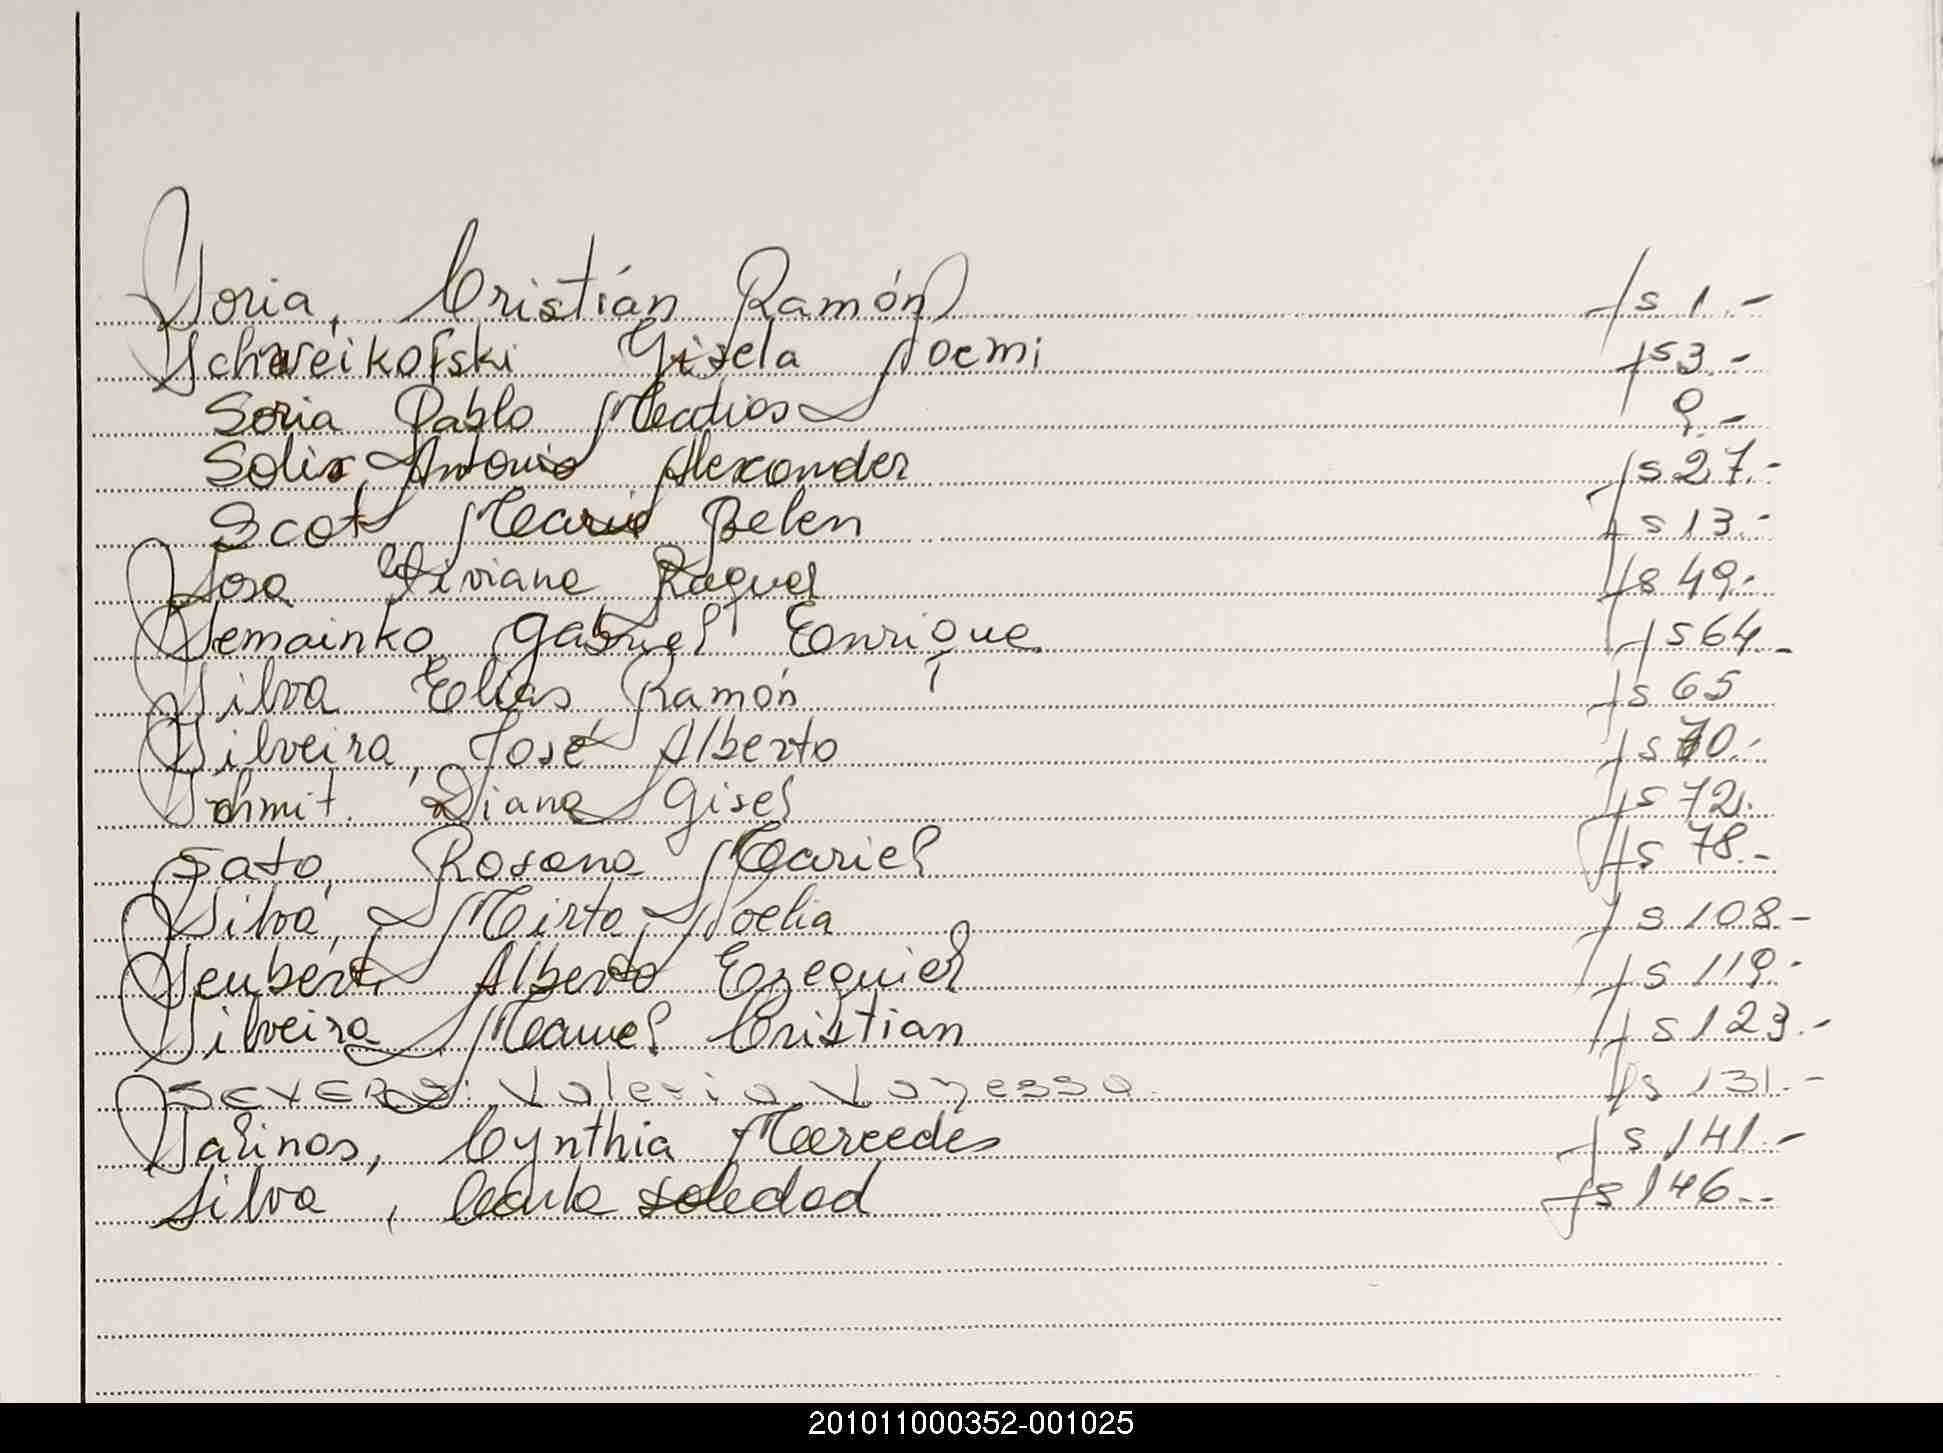 Soria, Cristián Ramón fs 1.-
Schweikofski Gisela Noemi fs 3.-
Soria Pablo Matias 9.-
Solis, Antonio Alexander fs 27.-
Scot Maria Belen fs 13.-
Sosa Viviana Raquel fs 49.-
Semainko Gabriel Enrique fs 64.-
Silva Elias Ramón fs 65
Silveira, José Alberto fs 70.-
Schmit. Diana Gisel fs 72.-
Sato, Rosana Mariel fs 78.-
Silva, Mirta Noelia fs 108.-
Seubert, Alberto Ezequiel fs 119.-
Silveira Manuel Cristian fs 123.-
Valeria Vanessa. fs 131.-
Salinas, Cynthia Mercedes fs 141.-
Silva, Carla Soledad fs 146.-
201011000352-001025